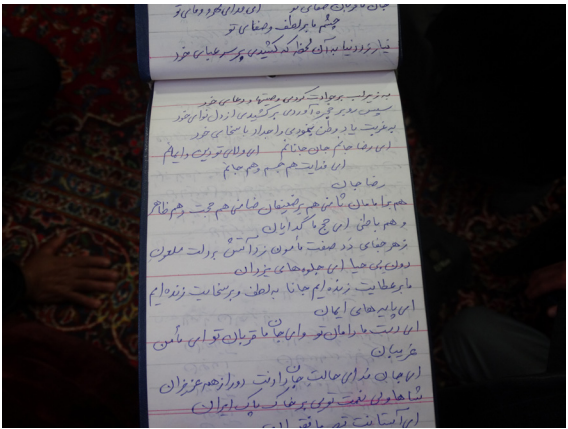 جان ما قربان صفای تو ای فدای مهر و وفای تو
چشم ما بر لطف و صفای تو
نیاز زد دنیا به آن لحظه که کشیدی بر سر عبای خود
به زیر لب بر جوادت کردی وصیتها و دعای خود
سپس رو بر حجره آوردی بر کشیدی از دل نوای خود
به غربت یاد وطن بنمودی و اجداد با سخای خود
ای رضا جانم جان جانانم ای ولای تو دین و ایمانم
ای فدایت هم جسم و هم جانم
رضا جان
هم بر ما مامان ثامنی هم بر ضعیفان ضامنی هم حجت و هم ظاهر
و هم باطنی ای حج ما گدایان
زهر جفای دد صفت مأمون زد آتش بر دلت ملعون
دون بی حیا ای جلوه های یزدان
ما بر عطایت زنده ایم جانا به لطف و بر سخایت زنده ایم
ای پایه های ایمان
ای دست ما دامان تو وای جان ما قربان تو ای مأمن
غریبان
ای جان فدای حالت جان دادنت دور از همه عزیزان
شاها ولی نعمت تویی بر خاک پاک ایران
ای آستانت